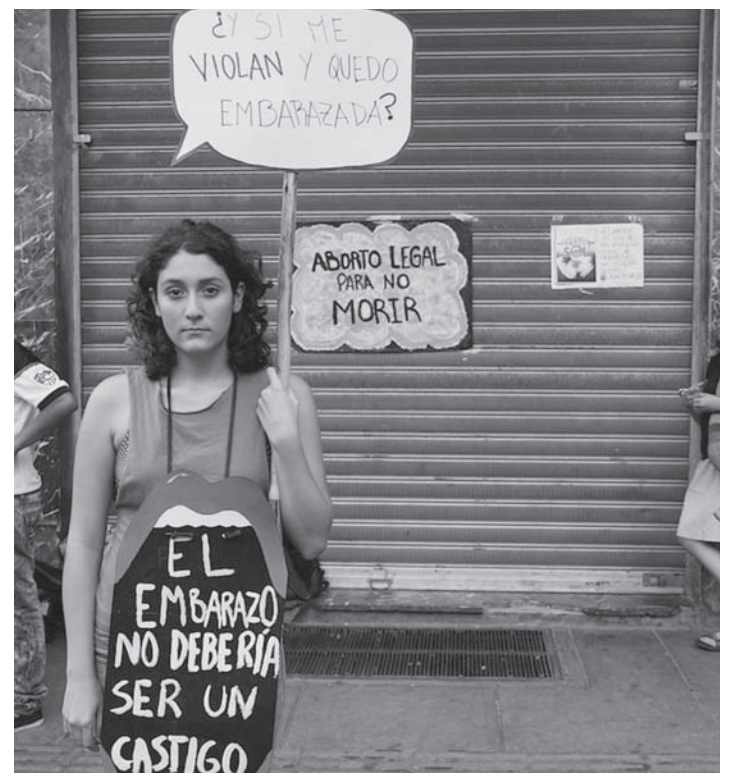 ¿Y SI ME
VIOLAN Y QUEDO
EMBARAZADA?
ABORTO LEGAL
PARA NO
MORIR
EL
EMBARAZO
NO DEBERÍA
SER UN
CASTIGO